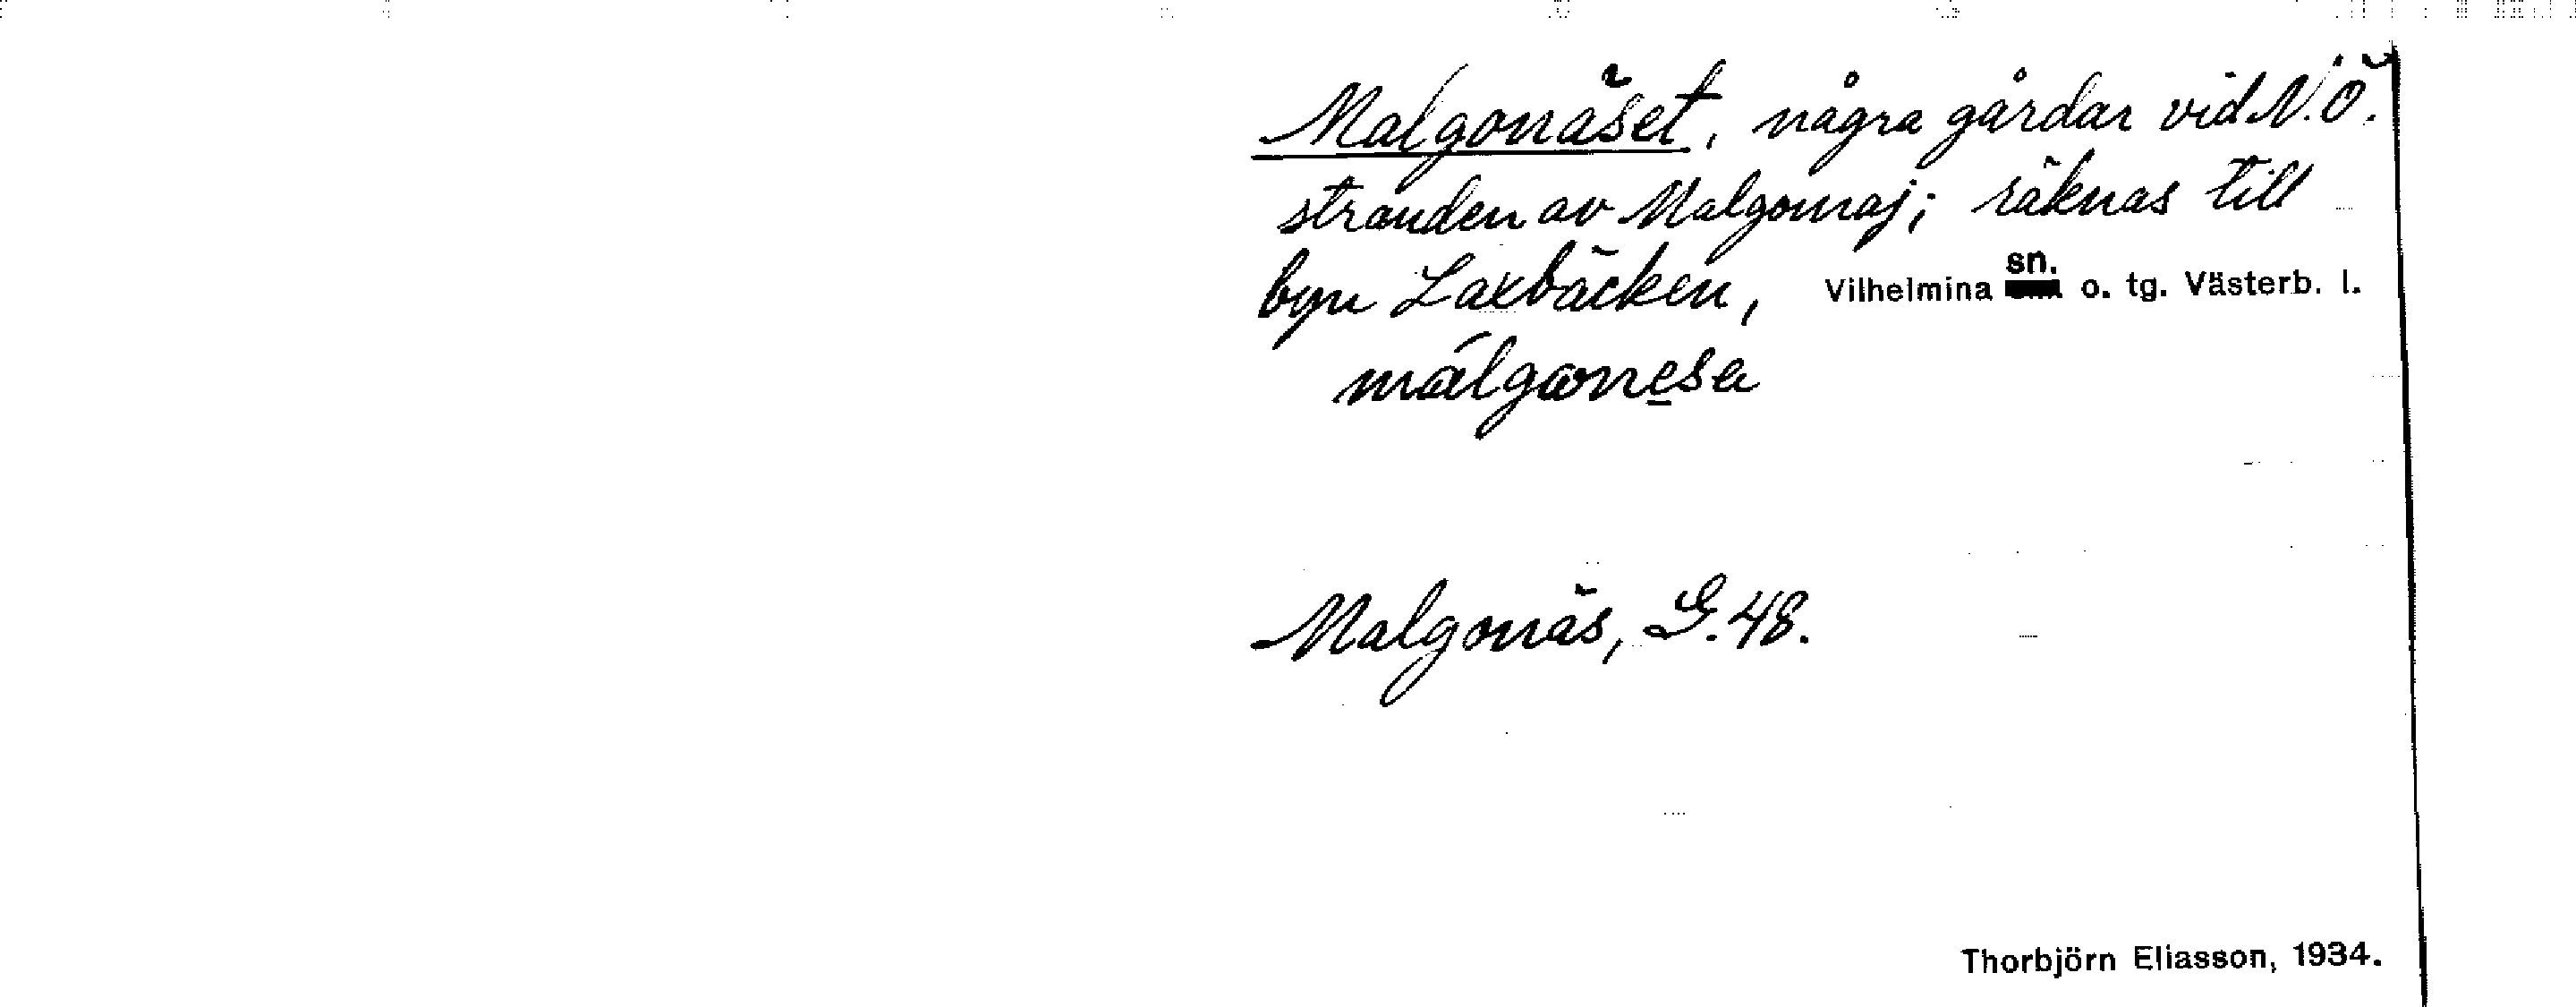 Malgonäset, några gårdar vid N.Ö.
stranden av Malgomaj; räknas till
byn Laxbäcken, Vilhelmina sn. o. tg. Västerb. l.
málgonesa
Malgonäs, G.48.
Thorbjörn Eliasson, 1934.